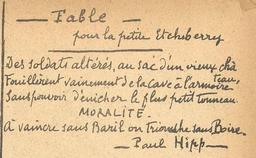 — Fable —
pour la petite Etcheberry
Des soldats altérés, au sac d'un vieux châ
teau,
Fouillèrent vainement de la cave à l'armoire
Sans pouvoir dénicher le plus petit tonneau.
MORALITÉ.
A vaincre sans Baril on Triomphe sans Boire.
— Paul Hipp —